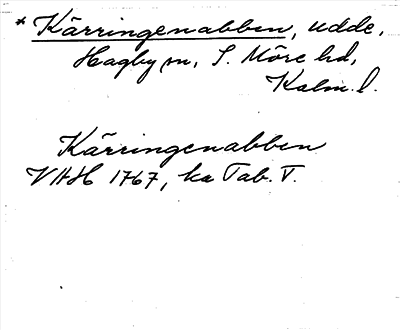 * Kärringenabben, udde,
Hagby sn, S. Möre hd,
Kalm. l.
Kärringenabben
VHH 1767, ka Tab. V.